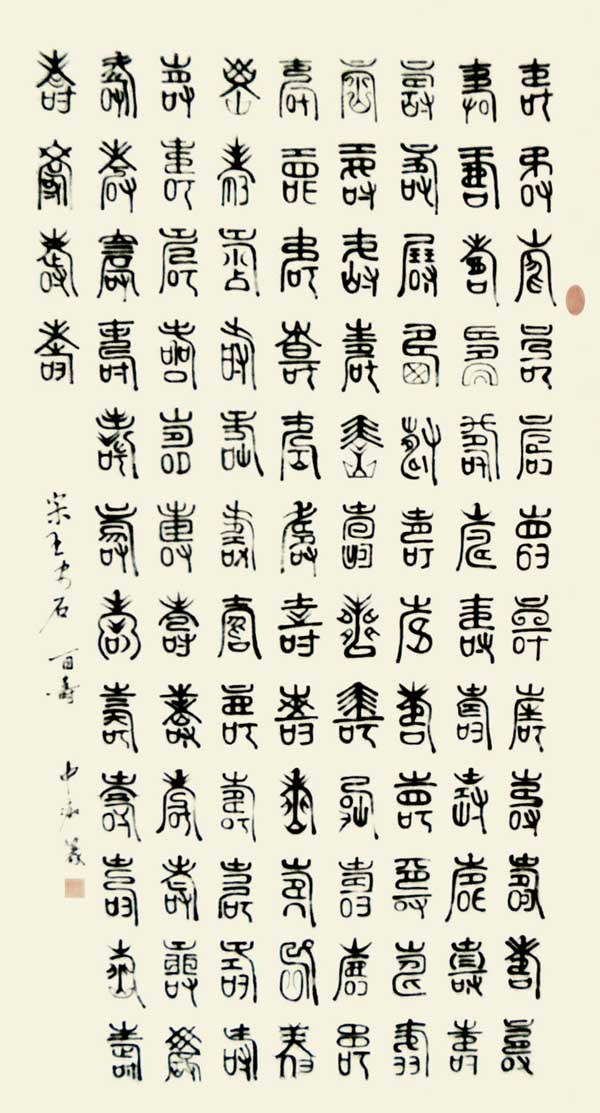 壽壽壽壽壽壽壽壽壽壽壽壽
壽壽壽壽壽壽壽壽壽壽壽壽
壽壽壽壽壽壽壽壽壽壽壽壽
壽壽壽壽壽壽壽壽壽壽壽壽
壽壽壽壽壽壽壽壽壽壽壽壽
壽壽壽壽壽壽壽壽壽壽壽壽
壽壽壽壽壽壽壽壽壽壽壽壽
壽壽壽壽壽壽壽壽壽壽壽壽
壽壽壽壽
宋王安石 百壽